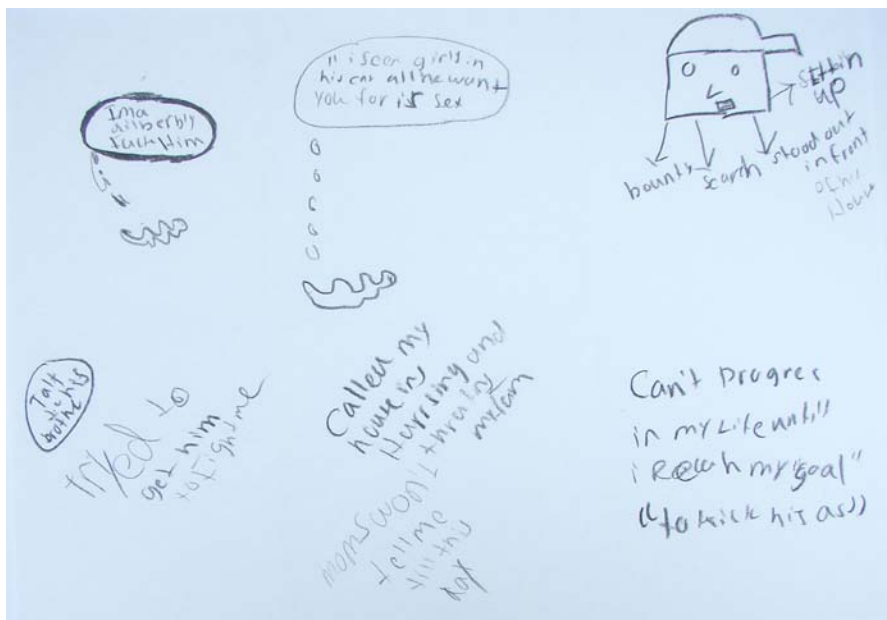 Ima
dilberbly
fuck Him
"i seen girls in
his car all he want
you for is sex
Sittin
up
bounty
search
stood out
in front
of his
House
Talk
to his
brother
tryed to
get him
to fight me
Called my
house in
Harrsmy and
thratin
my fam
moms won't
tell me
till this
day
Can't Progres
in my Life until
i Reach my "goal"
"to kick his ass"